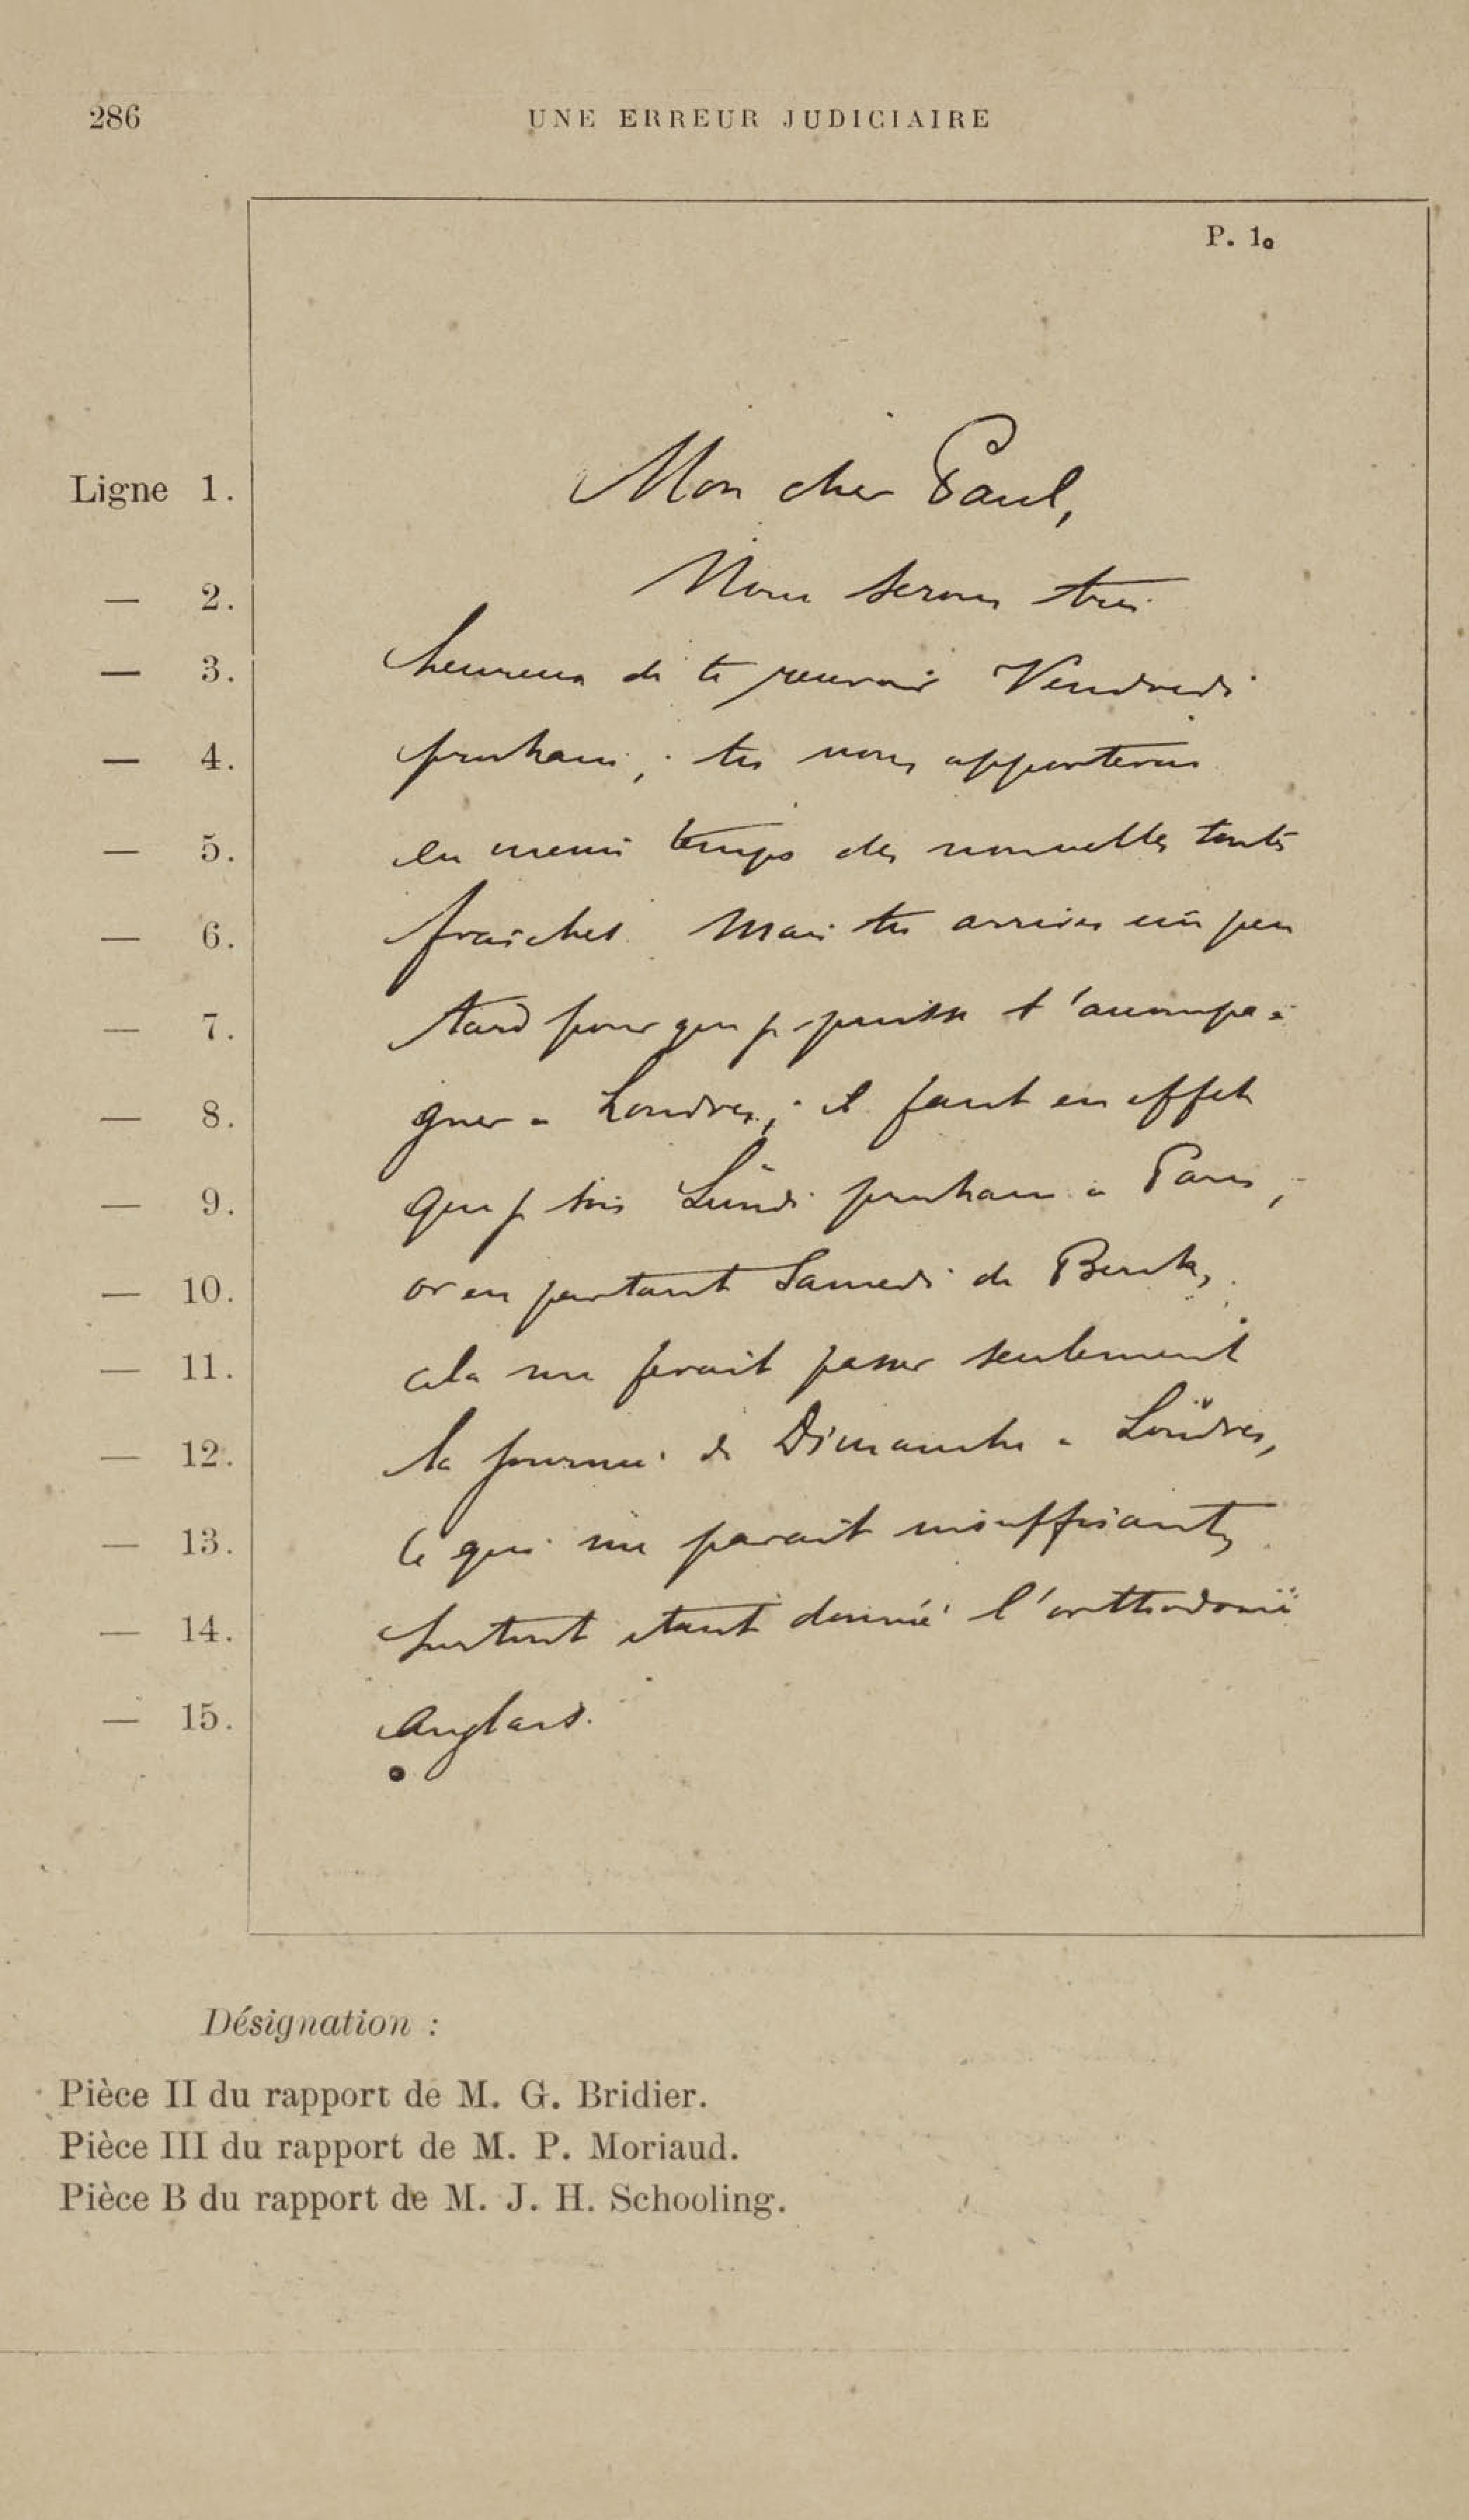 286 UNE ERREUR JUDICIAIRE
P. 1.
Ligne 1. Mon cher Paul,
— 2. Nous serons très
— 3. heureux de te revoir Vendredi
— 4. prochain ; tu nous apporteras
— 5. en même temps des nouvelles toutes
— 6. fraîches. Mais tu arrives un peu
— 7. tard pour que je puisse t'accompa-
— 8. gner à Londres ; il faut en effet
— 9. que je sois Lundi prochain à Paris ;
— 10. or en partant Samedi de Berck,
— 11. cela me ferait passer seulement
— 12. la journée de Dimanche à Londres,
— 13. ce qui me paraît insuffisant,
— 14. surtout étant donné l'orthodoxie
— 15. Anglaise.
Désignation :
Pièce II du rapport de M. G. Bridier.
Pièce III du rapport de M. P. Moriaud.
Pièce B du rapport de M. J. H. Schooling.